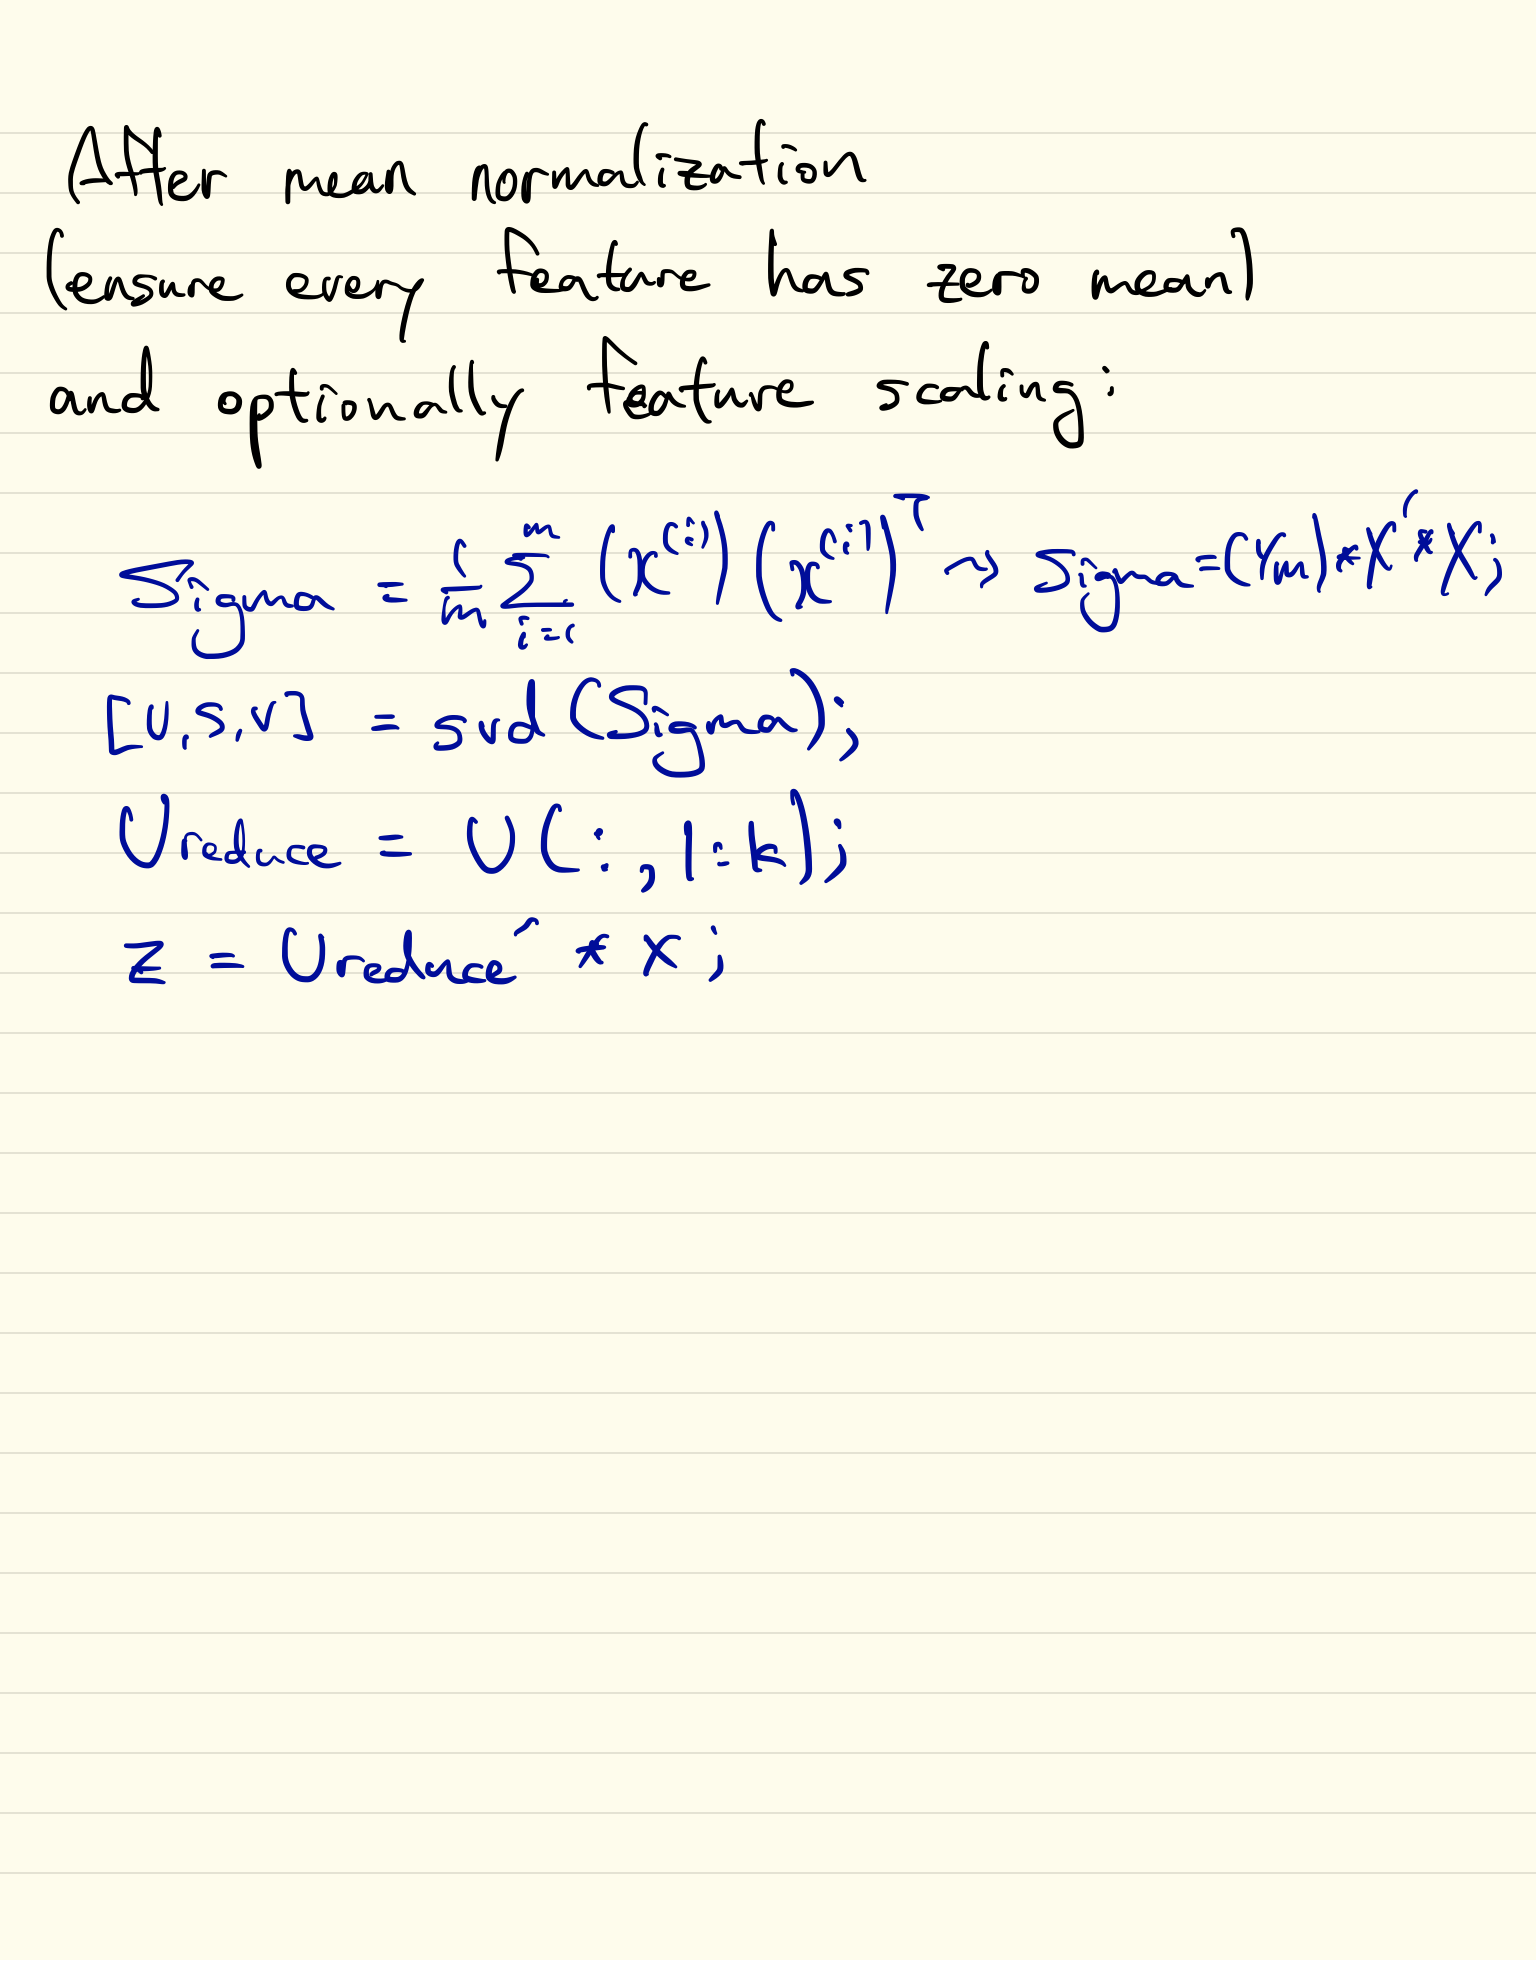 After mean normalization
(ensure every feature has zero mean)
and optionally feature scaling:
Sigma = 1/m ∑_{i=1}^{m} (x^{(i)}) (x^{(i)})^T ⇝ Sigma = (1/m) * X' * X;
[U,S,V] = svd(Sigma);
Ureduce = U(:,1:k);
z = Ureduce' * x;